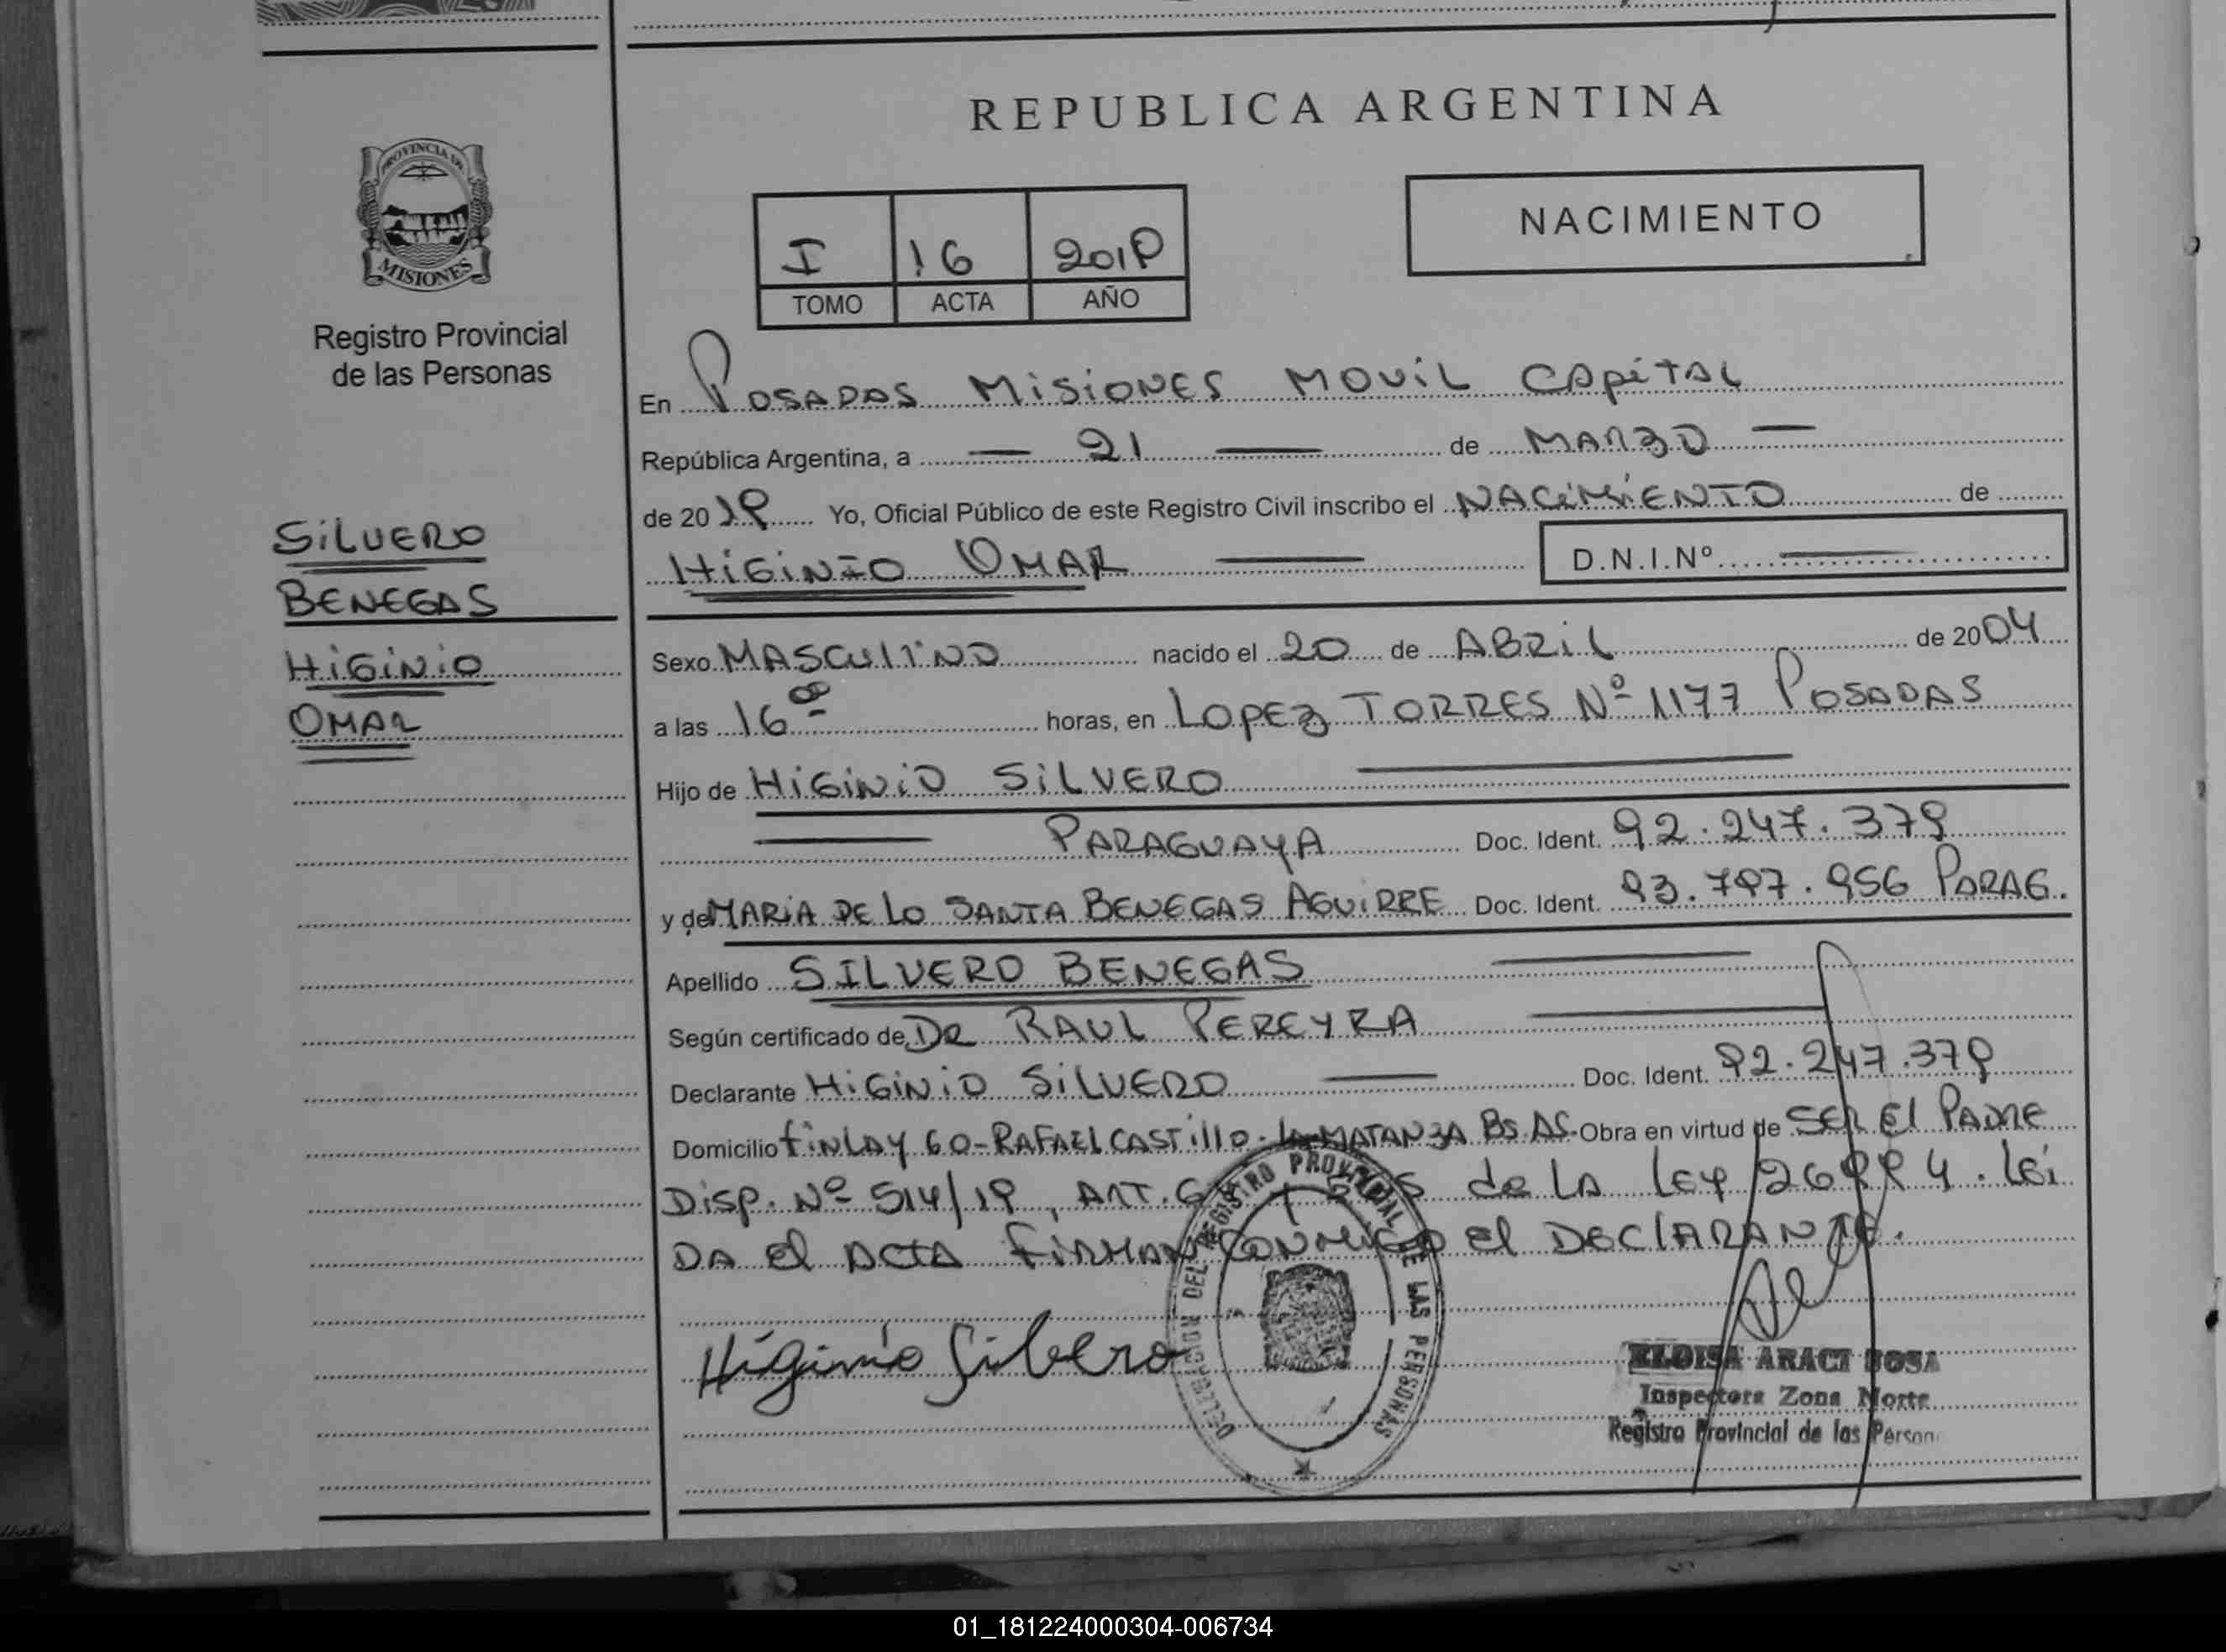 REPUBLICA ARGENTINA
PROVINCIA DE
MISIONES
Registro Provincial
de las Personas
SILVERO
BENEGAS
HIGINIO
OMAR
I 16 2019
TOMO ACTA AÑO
NACIMIENTO
En POSADAS MISIONES MOVIL CAPITAL
República Argentina, a — 21 — de MARZO —
de 2019 Yo, Oficial Público de este Registro Civil inscribo el NACIMIENTO de
HIGINIO OMAR — D.N.I.Nº —
Sexo MASCULINO nacido el 20 de ABRIL de 2004
a las 16 00 horas, en LOPEZ TORRES Nº 1177 POSADAS
Hijo de HIGINIO SILVERO —
— PARAGUAYA Doc. Ident. 92.247.379
y de MARIA DE LO SANTA BENEGAS AGUIRRE Doc. Ident. 93.797.956 PARAG.
Apellido SILVERO BENEGAS —
Según certificado de DR RAUL PEREYRA —
Declarante HIGINIO SILVERO — Doc. Ident. 92.247.379
Domicilio FINLAY 60-RAFAEL CASTILLO-LA MATANZA BS.AS. Obra en virtud de SER El PADRE
DISP. Nº 514/19, ART. de LA LEY 26994. LEI
DA El ACTA FIRMAN CONMIGO El DECLARANTE.
Higinio Silvero
DELEGACION DEL REGISTRO PROVINCIAL DE LAS PERSONAS
ELOISA ARACI SOSA
Inspectora Zona Norte
Registro Provincial de las Person
01_181224000304-006734